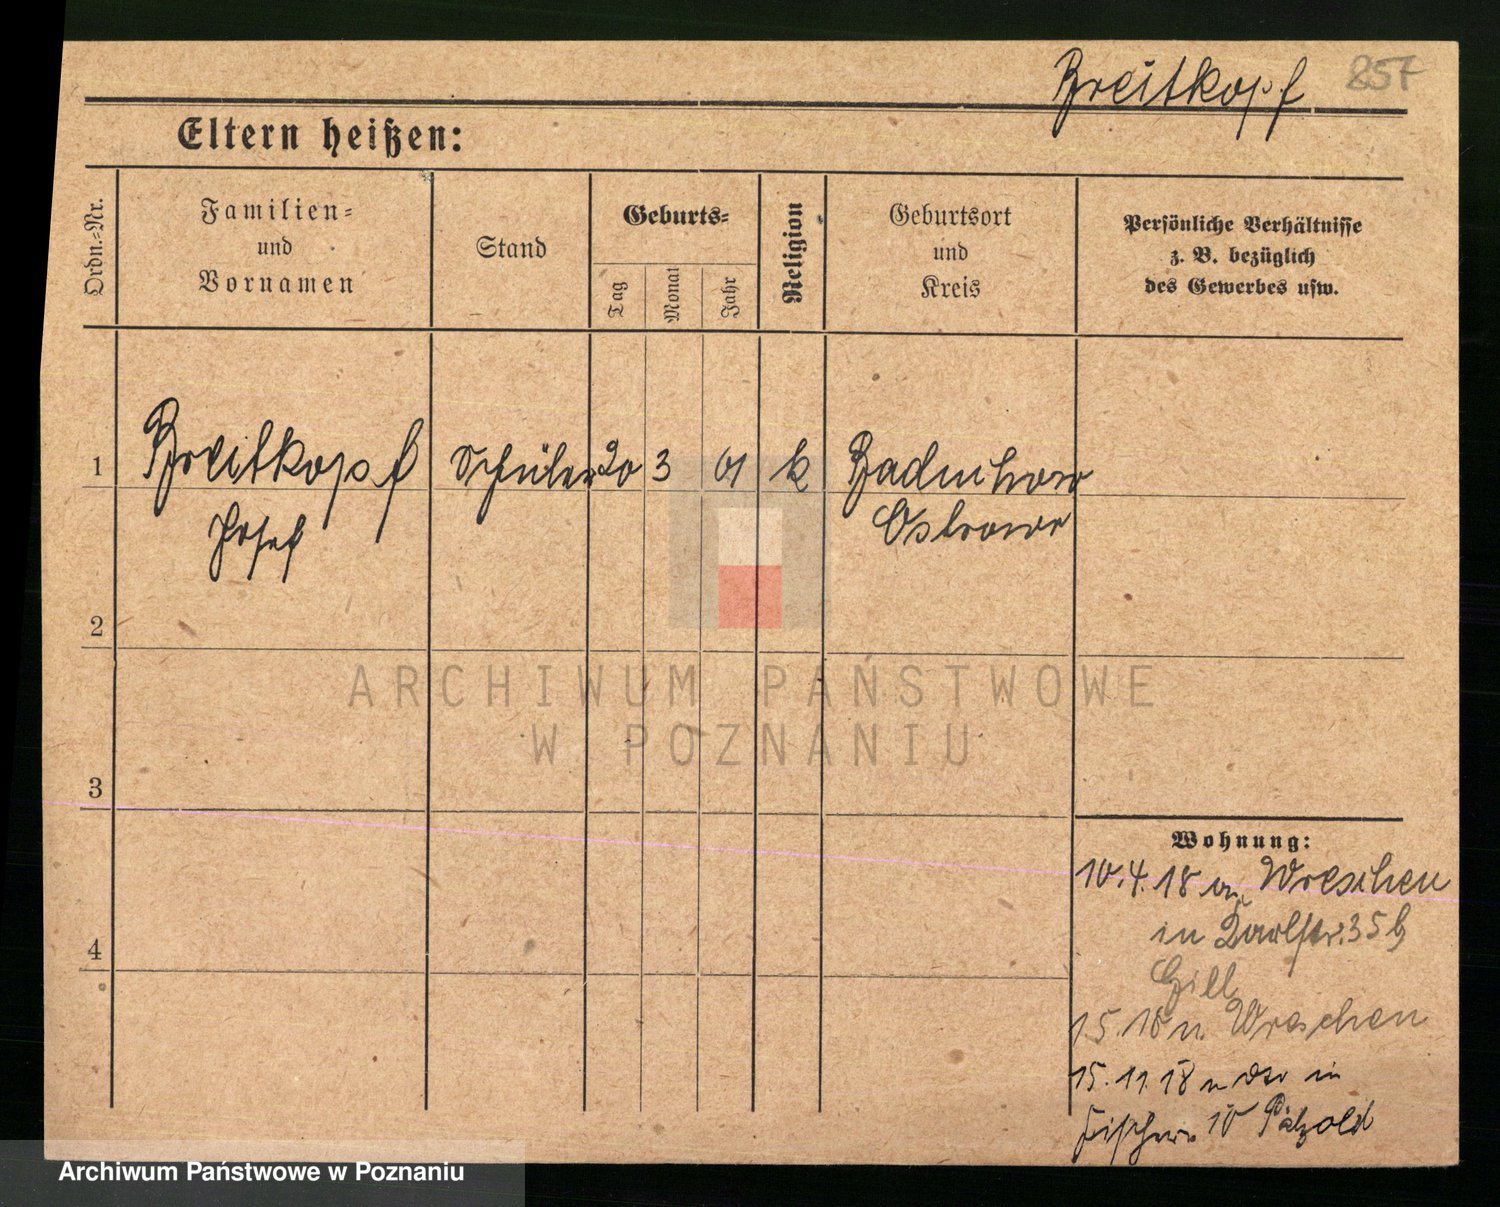 Breitkopf 857
Eltern heißen:
Ordn.=Nr.
Familien=
und
Vornamen
Stand
Geburts=
Tag
Monat
Jahr
Religion
Geburtsort
und
Kreis
Persönliche Verhältnisse
z. B. bezüglich
des Gewerbes usw.
1 Breitkopf Schüler 20 3 01 k
Josef Ostrowo
2
3
4
ARCHIWUM PAŃSTWOWE
W POZNANIU
Wohnung:
10.4.18 Wreschen
in Karlstr. 35b
Gill
15. n. Wreschen
15.11.18 in
10 Pätzold
Archiwum Państwowe w Poznaniu